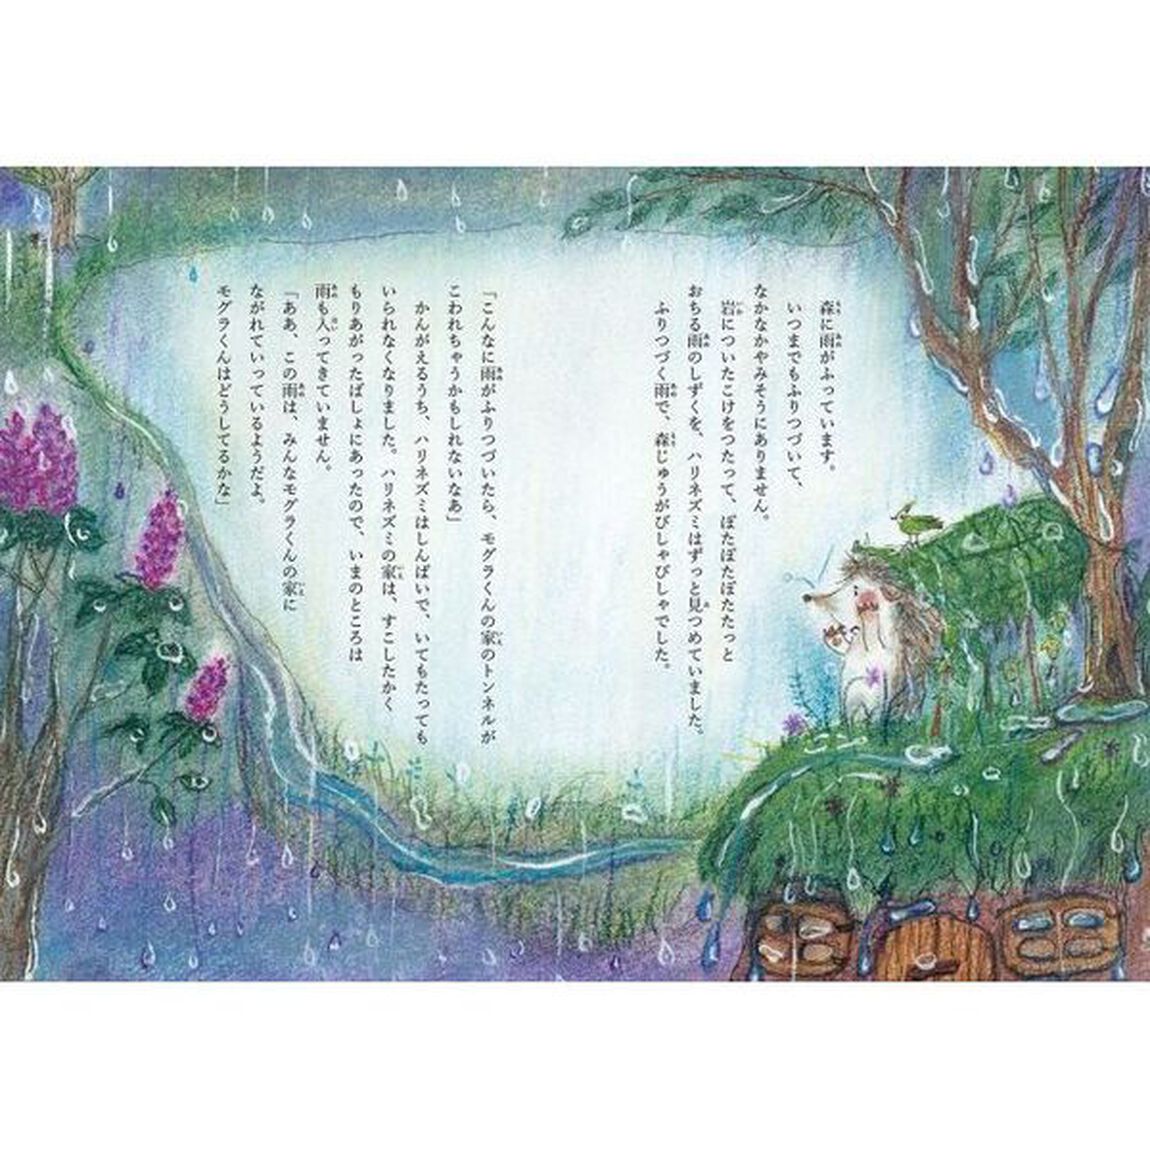 森に雨がふっています。
いつまでもふりつづいて、
なかなかやみそうにありません。
岩についたこけをつたって、ぽたぽたぽたたっと
おちる雨のしずくを、ハリネズミはずっと見つめていました。
ふりつづく雨で、森じゅうがびしゃびしゃでした。
「こんなに雨がふりつづいたら、モグラくんの家のトンネルが
こわれちゃうかもしれないなあ」
かんがえるうち、ハリネズミはしんぱいで、いてもたっても
いられなくなりました。ハリネズミの家は、すこしたかく
もりあがったばしょにあったので、いまのところは
雨も入ってきていません。
「ああ、この雨は、みんなモグラくんの家に
ながれていっているようだよ。
モグラくんはどうしてるかな」